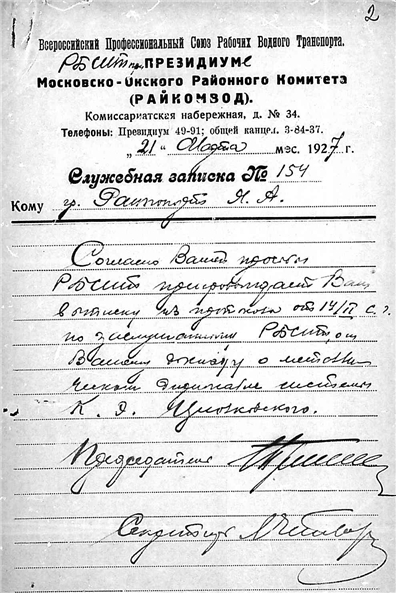 2
Всероссийский Профессиональный Союз Рабочих Водного Транспорта.
РБСИТ при ПРЕЗИДИУМЕ
Московско-Окского Районного Комитета
(РАЙКОМВОД).
Комиссариатская набережная, д. № 34.
Телефоны: Президиум 49-91; общей канцел. 3-84-37.
„21“ Марта мес. 1927 г.
Служебная записка № 154
Кому гр. Раппопорт Я. А.
Согласно Вашей просьбы
РБСИТ препровождает Вам
выписки из протокола от 14/II с. г.
по заслушанному РБСИТ,ом
Вашему докладу о металли
ческом дирижабле системы
К. Э. Циолковского.
Председатель
Секретарь